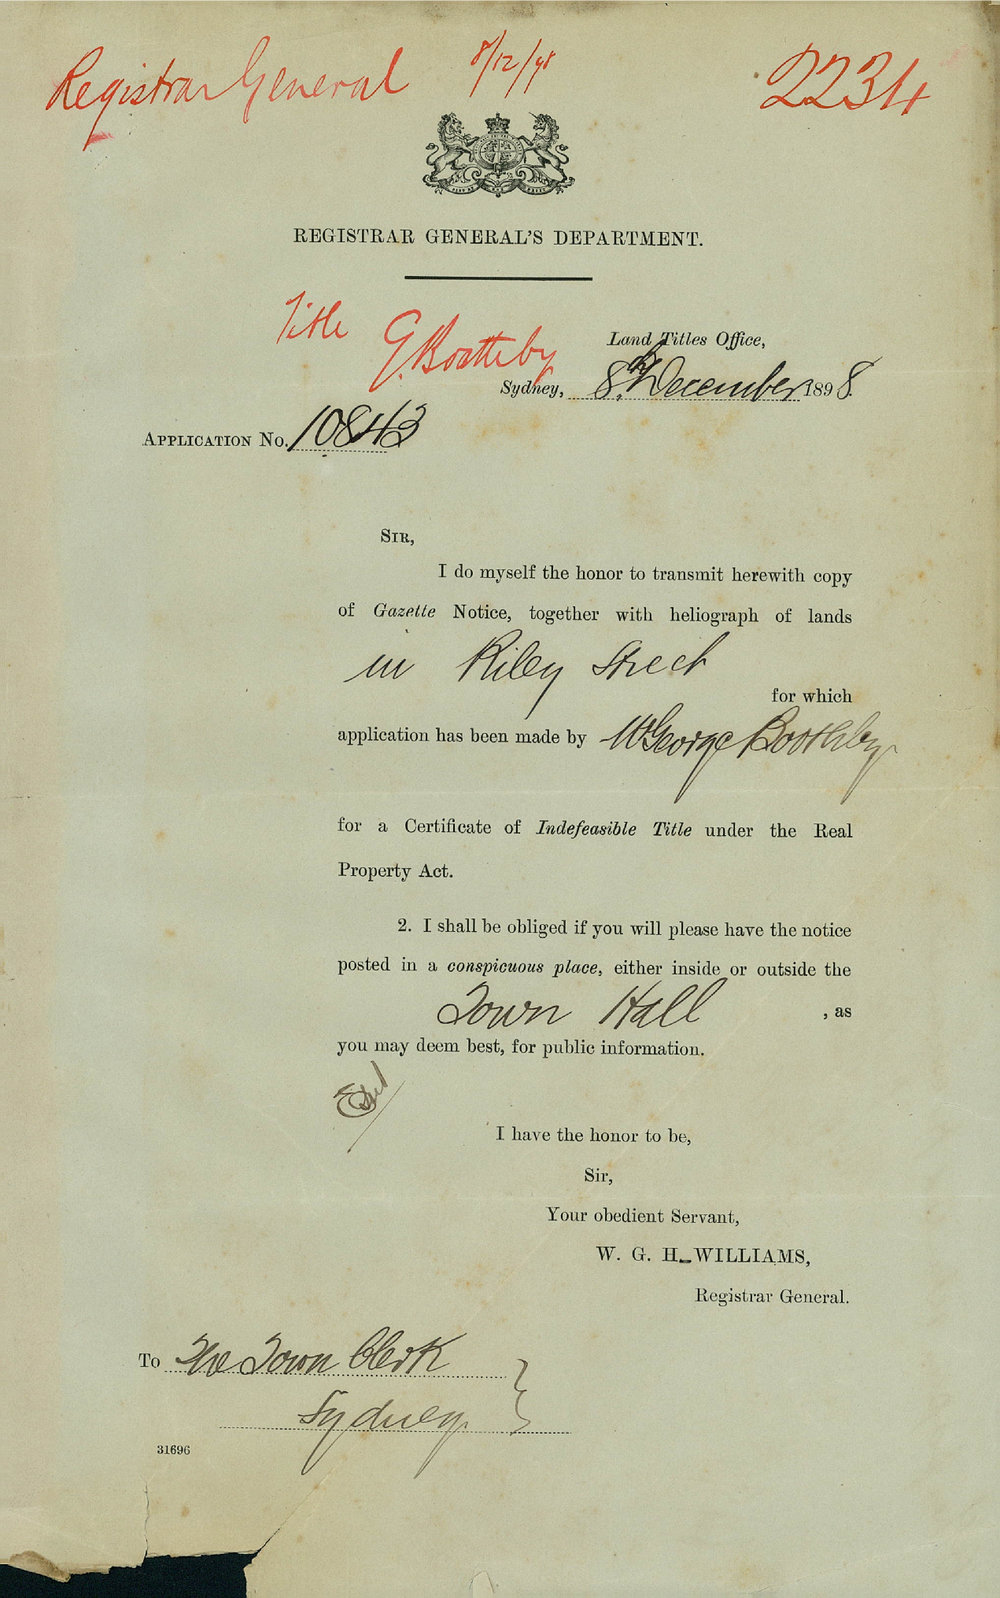 Registrar General 8/12/98 2234
REGISTRAR GENERAL'S DEPARTMENT.
Title G. Boothby
Land Titles Office,
Sydney, 8th December 1898.
APPLICATION No. 10843
SIR,
I do myself the honor to transmit herewith copy
of Gazette Notice, together with heliograph of lands
in Riley Street
for which
application has been made by Mr George Boothby
for a Certificate of Indefeasible Title under the Real
Property Act.
2. I shall be obliged if you will please have the notice
posted in a conspicuous place, either inside or outside the
Town Hall , as
you may deem best, for public information.
I have the honor to be,
Sir,
Your obedient Servant,
W. G. H. WILLIAMS,
Registrar General.
To The Town Clerk
Sydney.
31696